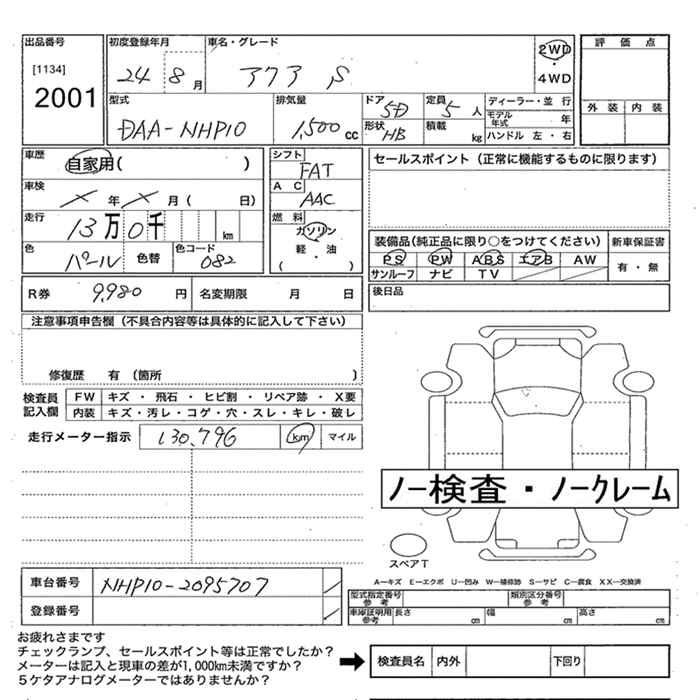 出品番号 初度登録年月 車名・グレード 評価点
[1134]
2001
24 8月 アクア S 2WD・4WD
外装 内装
型式 排気量 ドア 定員 ディーラー・並行
DAA-NHP10 1,500cc 5D 5人 モデル年式 年
形状 HB 積載 kg ハンドル 左・右
車歴 自家用( ) シフト FAT セールスポイント(正常に機能するものに限ります)
車検 ×年×月( 日) AC AAC
走行 13万0千 km 燃料 ガソリン 軽・油 ( )
装備品(純正品に限り○をつけてください) 新車保証書
色 パール 色替 色コード 082
PS PW ABS エアB AW 有・無
サンルーフ ナビ TV
R券 9,980円 名変期限 月 日 後日品
注意事項申告欄(不具合内容等は具体的に記入して下さい)
修復歴 有(箇所 )
検査員記入欄 FW キズ・飛石・ヒビ割・リペア跡・X要
内装 キズ・汚レ・コゲ・穴・スレ・キレ・破レ
走行メーター指示 130,796 km マイル
ノー検査・ノークレーム
スペアT
A−キズ E−エクボ U−凹み W−補修跡 S−サビ C−腐食 XX−交換済
車台番号 NHP10-2095707
型式指定番号参考 類別区分番号参考
登録番号 車庫証明用参考 長さ cm 幅 cm 高さ cm
お疲れさまです
チェックランプ、セールスポイント等は正常でしたか?
メーターは記入と現車の差が1,000km未満ですか?
5ケタアナログメーターではありませんか?
検査員名 内外 下回り